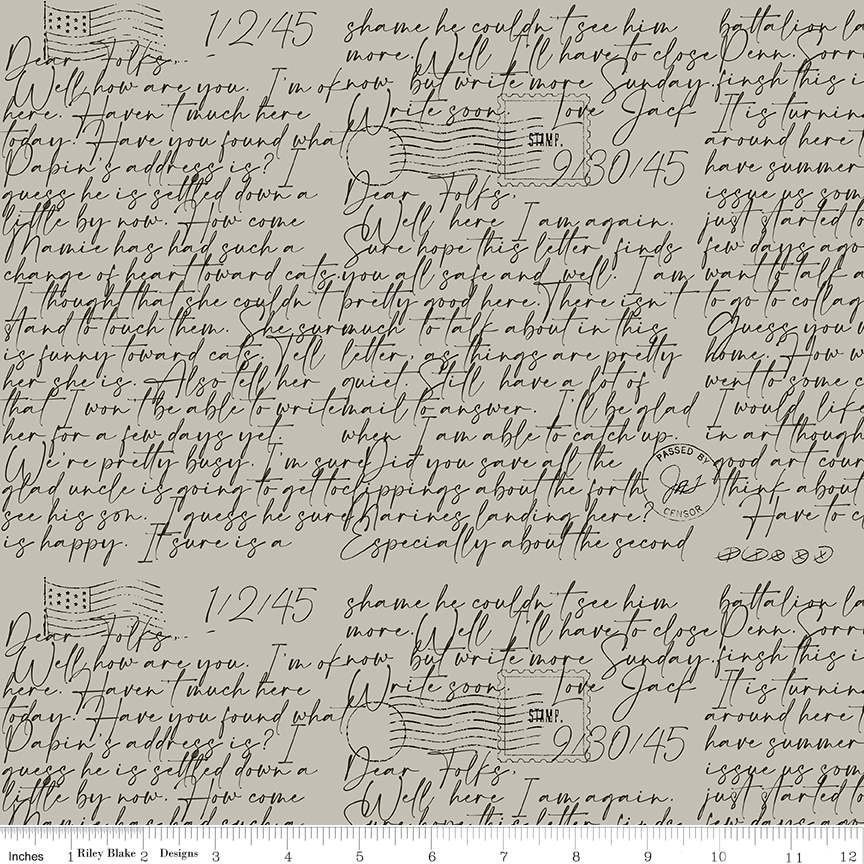 1/2/45
Dear Folks,
Well, how are you. I'm ok
here. Haven't much here
today. Have you found what
Papin's address is? I
guess he is settled down a
little by now. How come
Mamie has had such a
change of heart toward cats.
I thought that she couldn't
stand to touch them. She sur
is funny toward cats. Tell
her she is. Also tell her
that I won't be able to write
her for a few days yet.
We're pretty busy. I'm sure
glad uncle is going to get to
see his son. I guess he sure
is happy. It sure is a
shame he couldn't see him
more. Well I'll have to close
now but write more Sunday.
Write soon. Love Jack
STAMP.
9/30/45
Dear Folks,
Well here I am again.
Sure hope this letter finds
you all safe and well. I am
pretty good here. There isn't
much to talk about in this
letter, as things are pretty
quiet. Still have a lot of
mail to answer. I'll be glad
when I am able to catch up.
Did you save all the
clippings about the forth
Marines landing here?
Especially about the second
PASSED BY
CENSOR
battalion la
Penn. Sorry
finsh this i
It is turnin
around here t
have summer
issue us som
just started to
few days ago
want to talk a
to go to collag
Guess you w
home. How w
went to some c
I would lik
in art though
good art cour
think about
Have to c
1/2/45
Dear Folks,
Well, how are you. I'm ok
here. Haven't much here
today. Have you found what
Papin's address is? I
guess he is settled down a
little by now. How come
Mamie has had such a
shame he couldn't see him
more. Well I'll have to close
now but write more Sunday.
Write soon. Love Jack
STAMP.
9/30/45
Dear Folks,
Well here I am again.
Sure hope this letter finds
battalion la
Penn. Sorry
finsh this i
It is turnin
around here t
have summer
issue us som
just started to
few days ago
Inches 1 Riley Blake 2 Designs 3 4 5 6 7 8 9 10 11 12